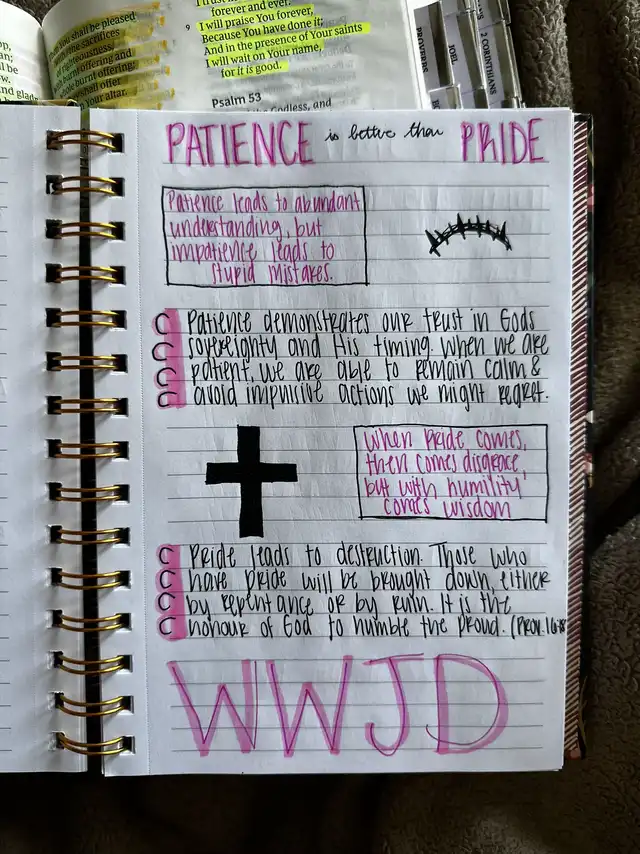 forever and ever.
9 I will praise You forever,
Because You have done it;
And in the presence of Your saints
I will wait on Your name,
for it is good.
Psalm 53
the Godless, and
shall be pleased
sacrifices
righteousness,
burnt offering and
whole burnt offering;
shall offer
Your altar.
and glad
PROVERBS
JOEL
2 CORINTHIANS
PATIENCE is better than PRIDE
Patience leads to abundant
understanding, but
impatience leads to
stupid mistakes.
Patience demonstrates our trust in Gods
sovereignty and His timing. When we are
patient, we are able to remain calm &
avoid impulsive actions we might regret.
When Pride comes,
then comes disgrace,
but with humility
comes wisdom
Pride leads to destruction. Those who
have pride will be brought down, either
by repentance or by ruin. It is the
honour of God to humble the proud. (Prov. 16:18
WWJD